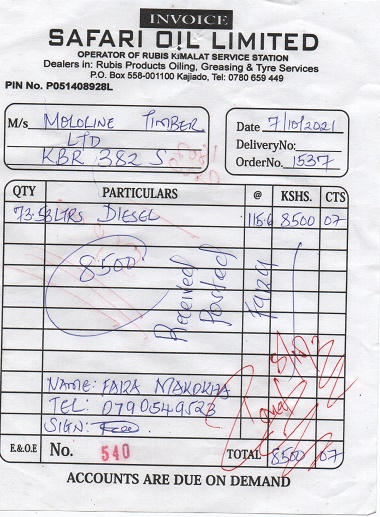 INVOICE
SAFARI OIL LIMITED
OPERATOR OF RUBIS KIMALAT SERVICE STATION
Dealers in: Rubis Products Oiling, Greasing & Tyre Services
P.O. Box 558-001100 Kajiado, Tel: 0780 659 449
PIN No. P051408928L
M/s MOLOLINE TIMBER
LTD
KBR 382 S
Date 7/10/2021
DeliveryNo:
OrderNo. 1537
QTY PARTICULARS @ KSHS. CTS
73.53LTRS DIESEL 115.6 8500 07
8500
Received
Posted
Faizy
NAME: FAIZA MAKOKHA
TEL: 0790549523
SIGN:
E.&O.E No. 540 TOTAL 8500 07
ACCOUNTS ARE DUE ON DEMAND